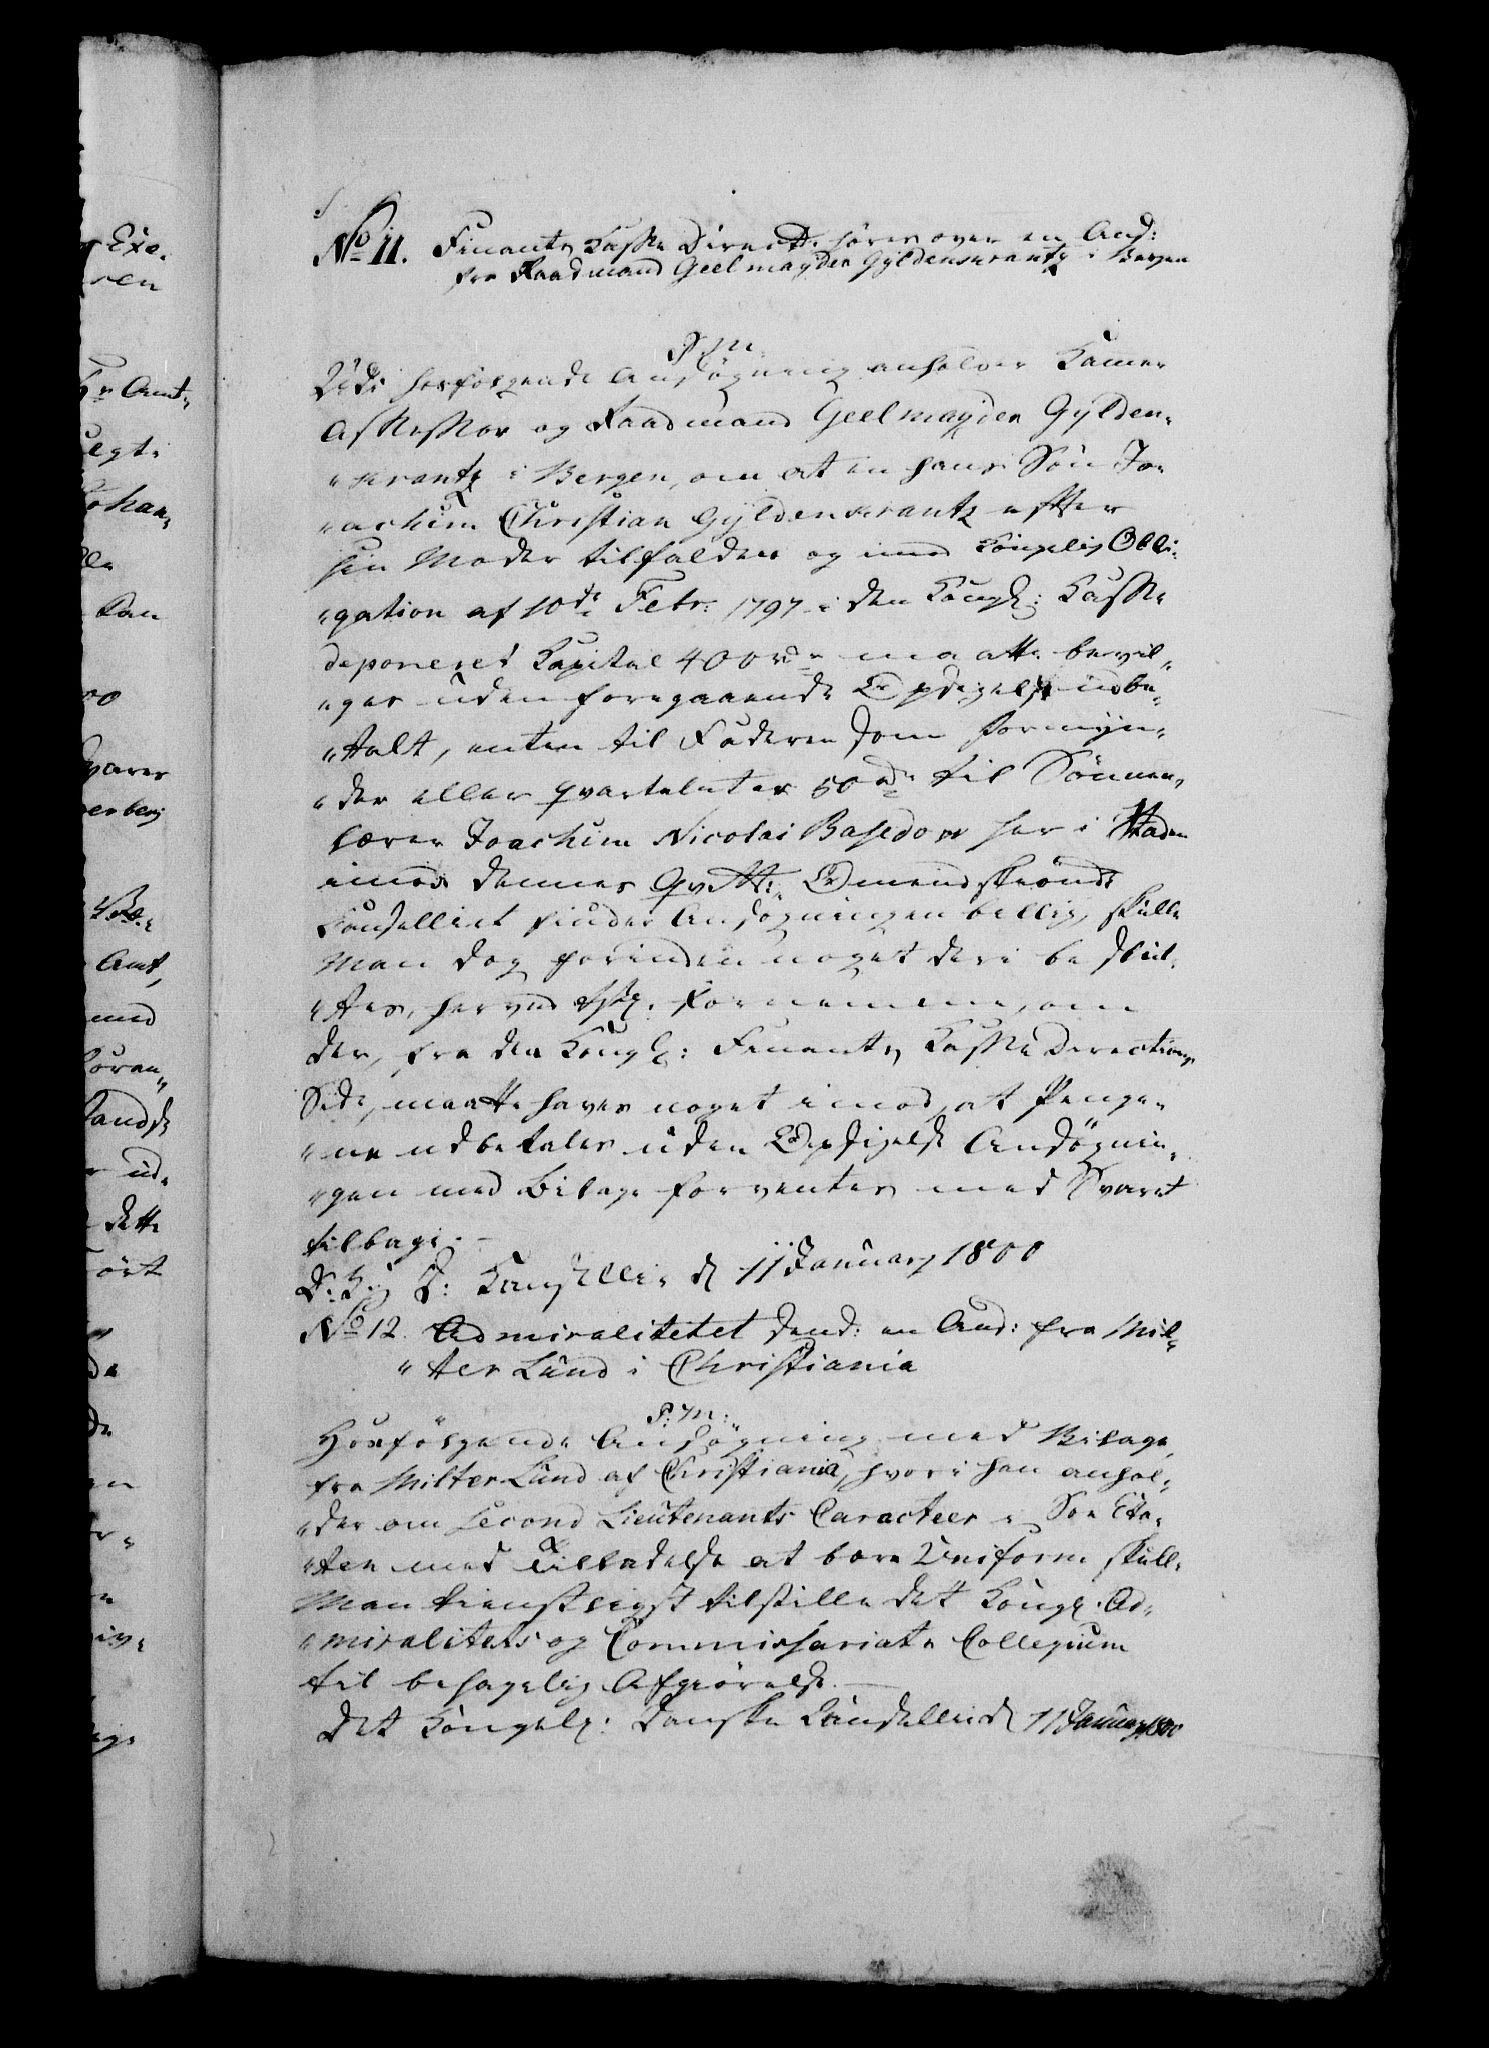 No 11. Finants Casse Direct: høres over en Ans:
fra Raadmand Geelmayden Gyldenkrantz i Bergen
P. M.
Udi hosfølgende Ansøgning anholder Kamer
Assessor og Raadmand Geelmayden Gylden„
„krantz i Bergen, om at en hans Søn Jo„
„achim Christian Gyldenkrantz efter
sin Moder tilfalden og imod Kongelig Obli„
„gation af 10de Febr: 1797 i den Kongl: Kasse
deponeret Kapital 400 rd maatte bevil„
„ges uden foregaaende Opsigelse udbe„
„talt, enten til Faderen som Formyn„
„der eller qvartaliter 50 rd til Sønnens
lærer Joachim Nicolai Basedow her i Staden
imod dennes Qvitt: Omendskiøndt
Cancelliet finder Ansøgningen billig, skulle
Man dog forinden noget deri beslut„
„tes, herved tienstl. fornemme, om
der, fra den Kongl: Finants Kasse Directions
Side, maatte haves noget imod, at Penge„
„ne udbetales uden Opsigelse Ansøgnin„
„gen med Bilage forventes med Svaret
tilbage.
D: K: D: Kancellie d 11 January 1800
No 12. Admiralitetet send: en Ans: fra Mil„
„ter Lund i Christiania
P: M:
Hosfølgende Ansøgning med Bilage
fra Milter Lund af Christiania, hvori han anhol„
„der om Second Lieutenants Caracteer i Søe Eta„
„ten med Tilladelse at bære Uniform skulle
Man tienstligst tilstille det Kongl. Ad„
„miralitets og Commissariats Collegium
til behagelig Afgiørelse.
Det Kongel: Danske Cancellie d 11 January 1800